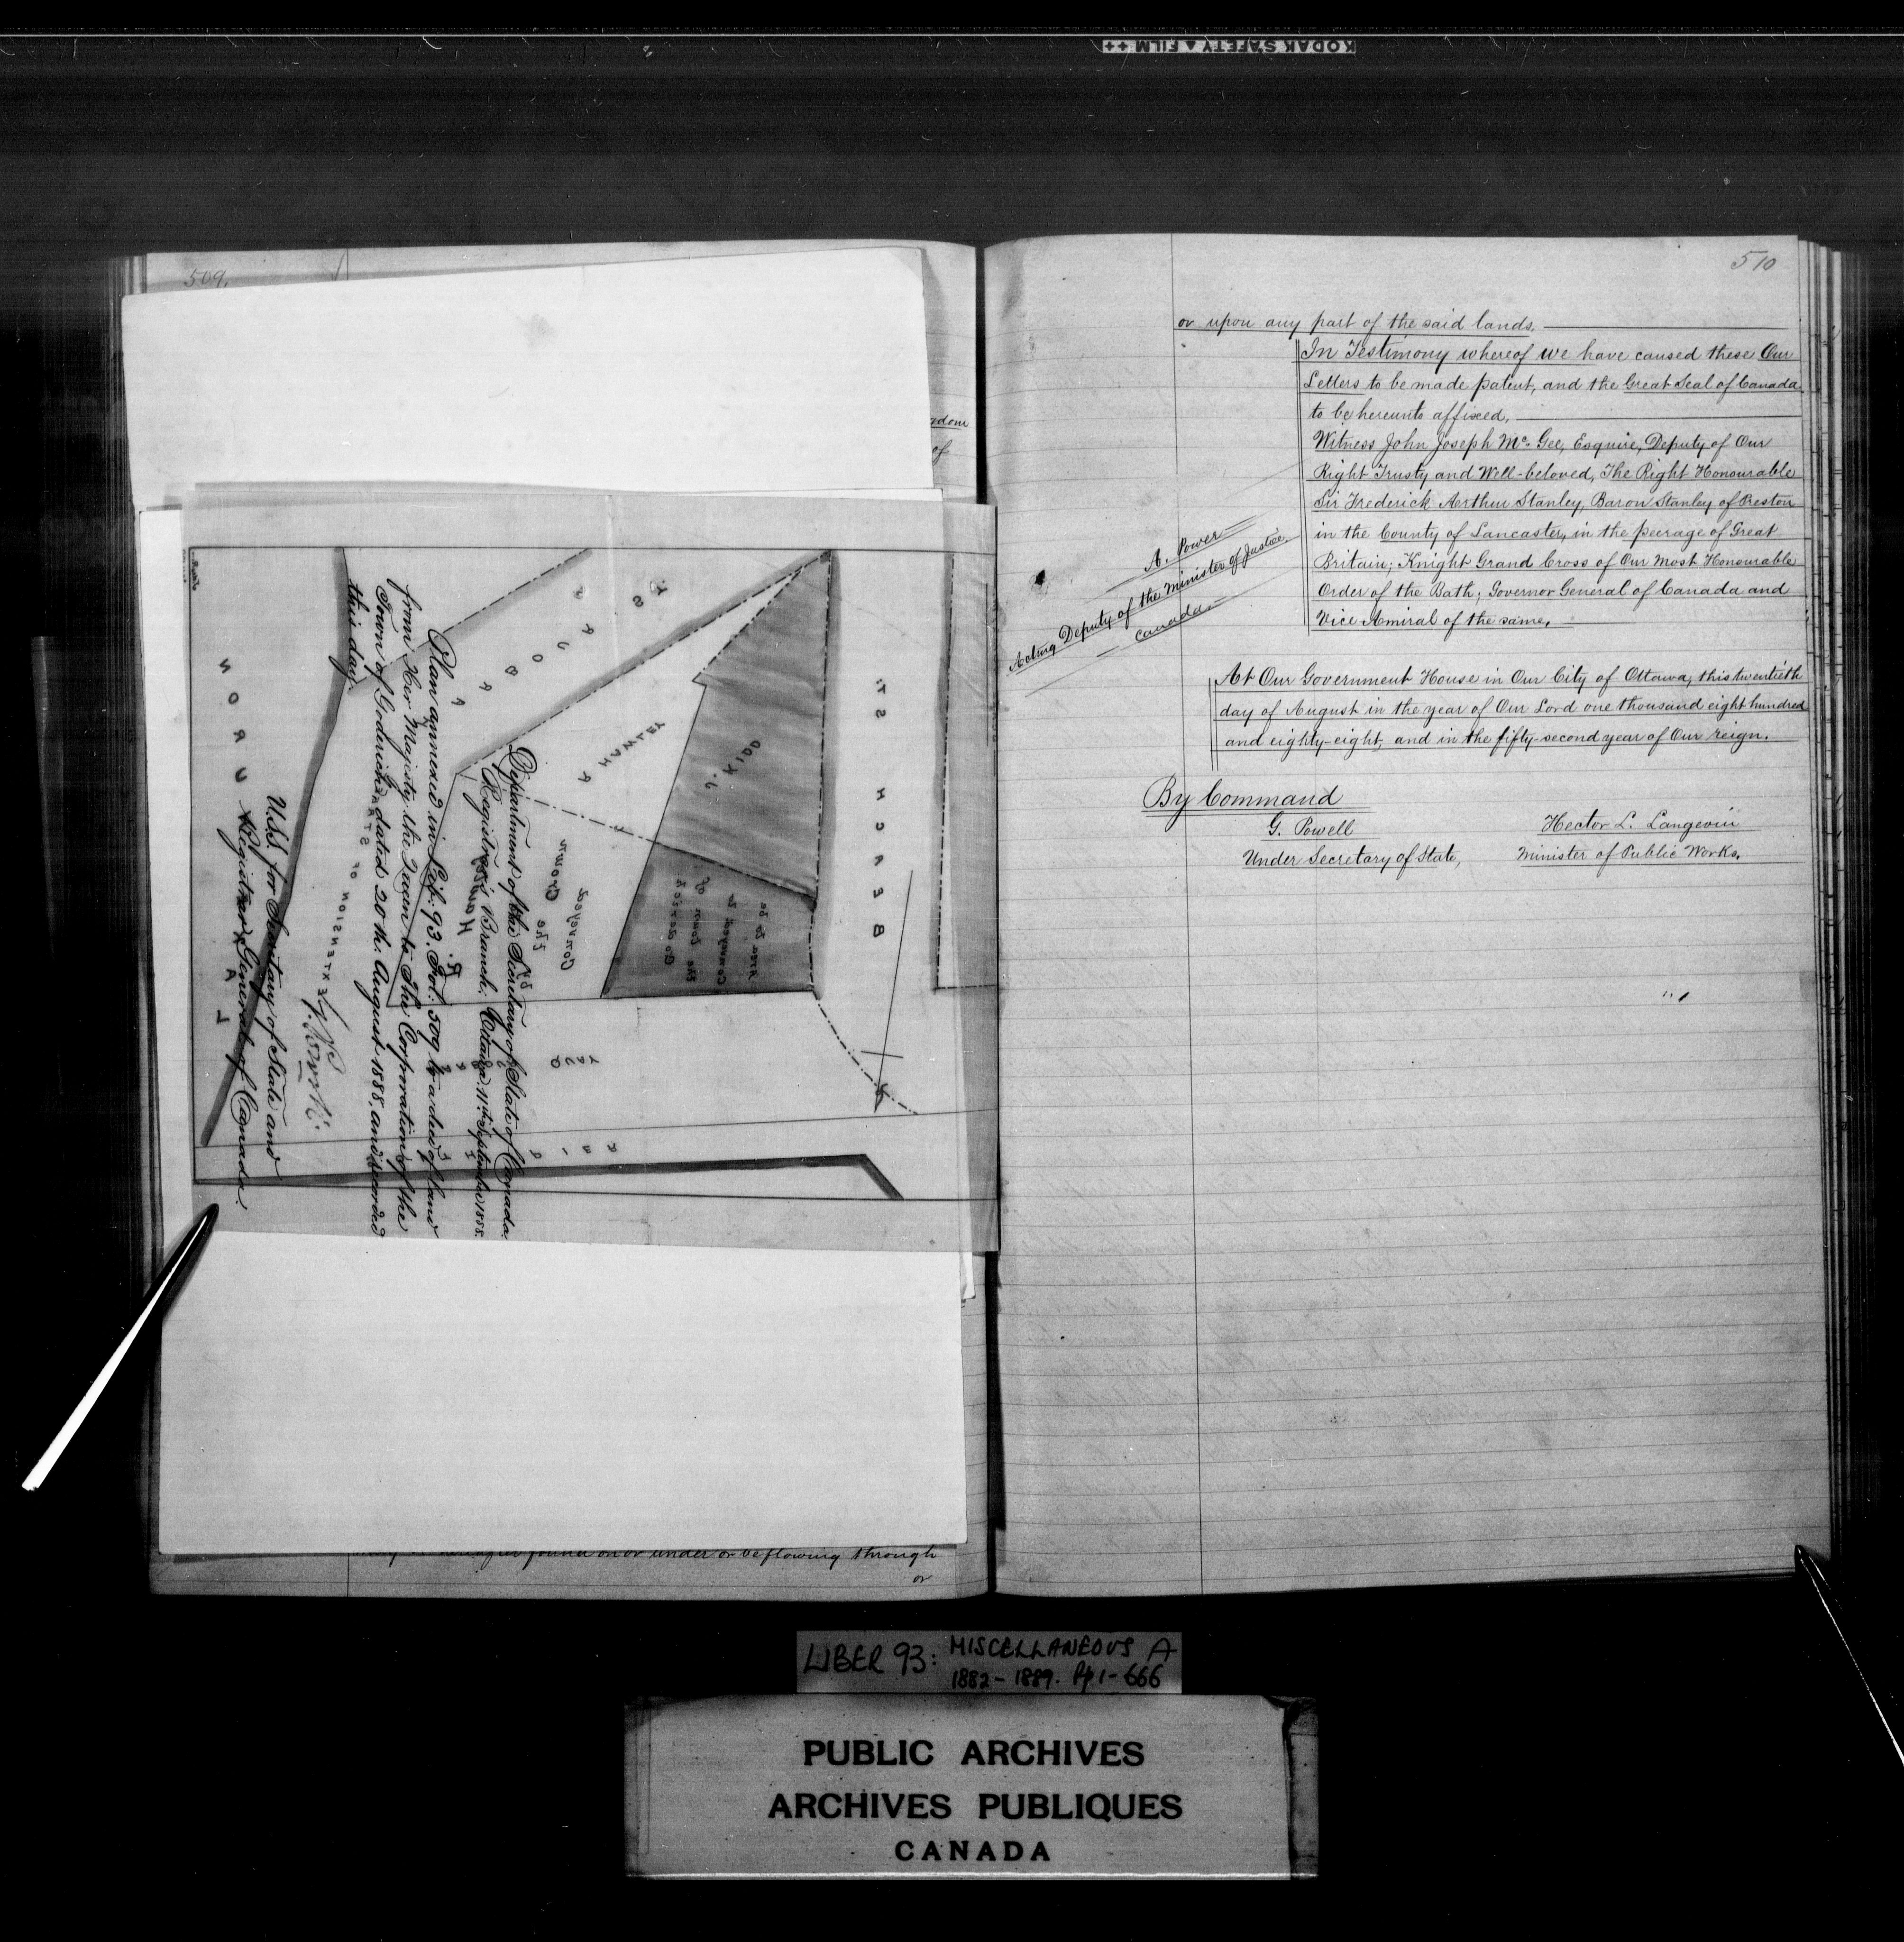 KODAK SAFETY ▲ FILM ++
509.
ndom
of
Department of the Secretary of State of Canada.
Registrar's Branch. Ottawa 11th September 1888.
Plan annexed in Lib: 93. Fol: 509 to a deed of land
from Her Majesty the Queen to The Corporation of the
Town of Goderich dated 20th. August 1888, and recorded
this day.
U.S.S. for Secretary of State and
Registrar General of Canada.
HARBOUR ST.
R HUMLEY
J. KIDD
BEACH ST.
Area to be
Conveyed to
the Town of
Goderich
Conveyed
by
the Crown
EXTENSION OF
QUAY
PIER
found on or under or be flowing through
or
510
or upon any part of the said lands.
In Testimony whereof we have caused these Our
Letters to be made patent, and the Great Seal of Canada
to be hereunto affixed,
Witness John Joseph Mc. Gee, Esquire, Deputy of Our
Right Trusty and Well-beloved, The Right Honourable
Sir Frederick Arthur Stanley, Baron Stanley of Preston
in the County of Lancaster, in the peerage of Great
Britain; Knight Grand Cross of Our Most Honourable
Order of the Bath; Governor General of Canada and
Vice Amiral of the same.
A. Power
Acting Deputy of the Minister of Justice
Canada.
At Our Government House in Our City of Ottawa, this twentieth
day of August in the year of Our Lord one thousand eight hundred
and eighty-eight, and in the fifty-second year of Our reign.
By Command
G. Powell
Under Secretary of State,
Hector L. Langevin
Minister of Public Works.
LIBER 93: MISCELLANEOUS A
1882-1889. Pp 1-666
PUBLIC ARCHIVES
ARCHIVES PUBLIQUES
CANADA